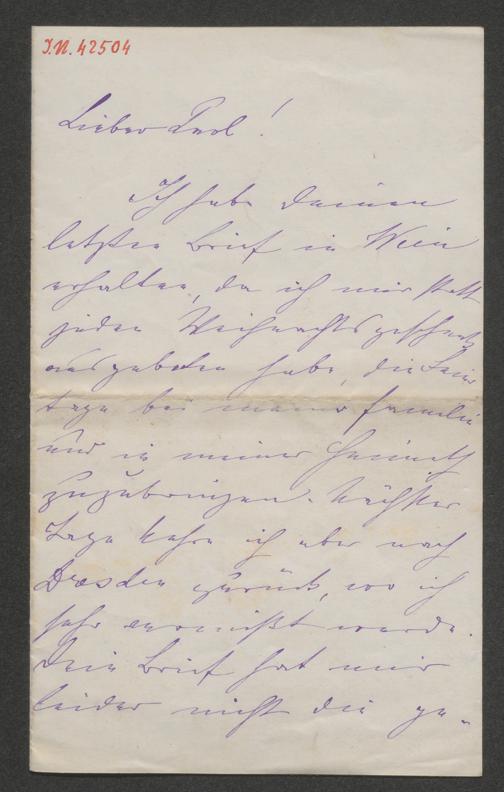 I.N. 42504
Lieber Paul!
Ich habe Deinen
letzten Brief in Wien
erhalten, da ich mir statt
jeden Weihnachtsgeschenks
ausgebeten habe, die Feier
tage bei meiner Familie
und in meiner Heimath
zuzubringen. Nächster
Tage kehre ich aber nach
Dresden zurück, wo ich
sehr vermißt werde.
Dein Brief hat mir
leider nicht die ge-